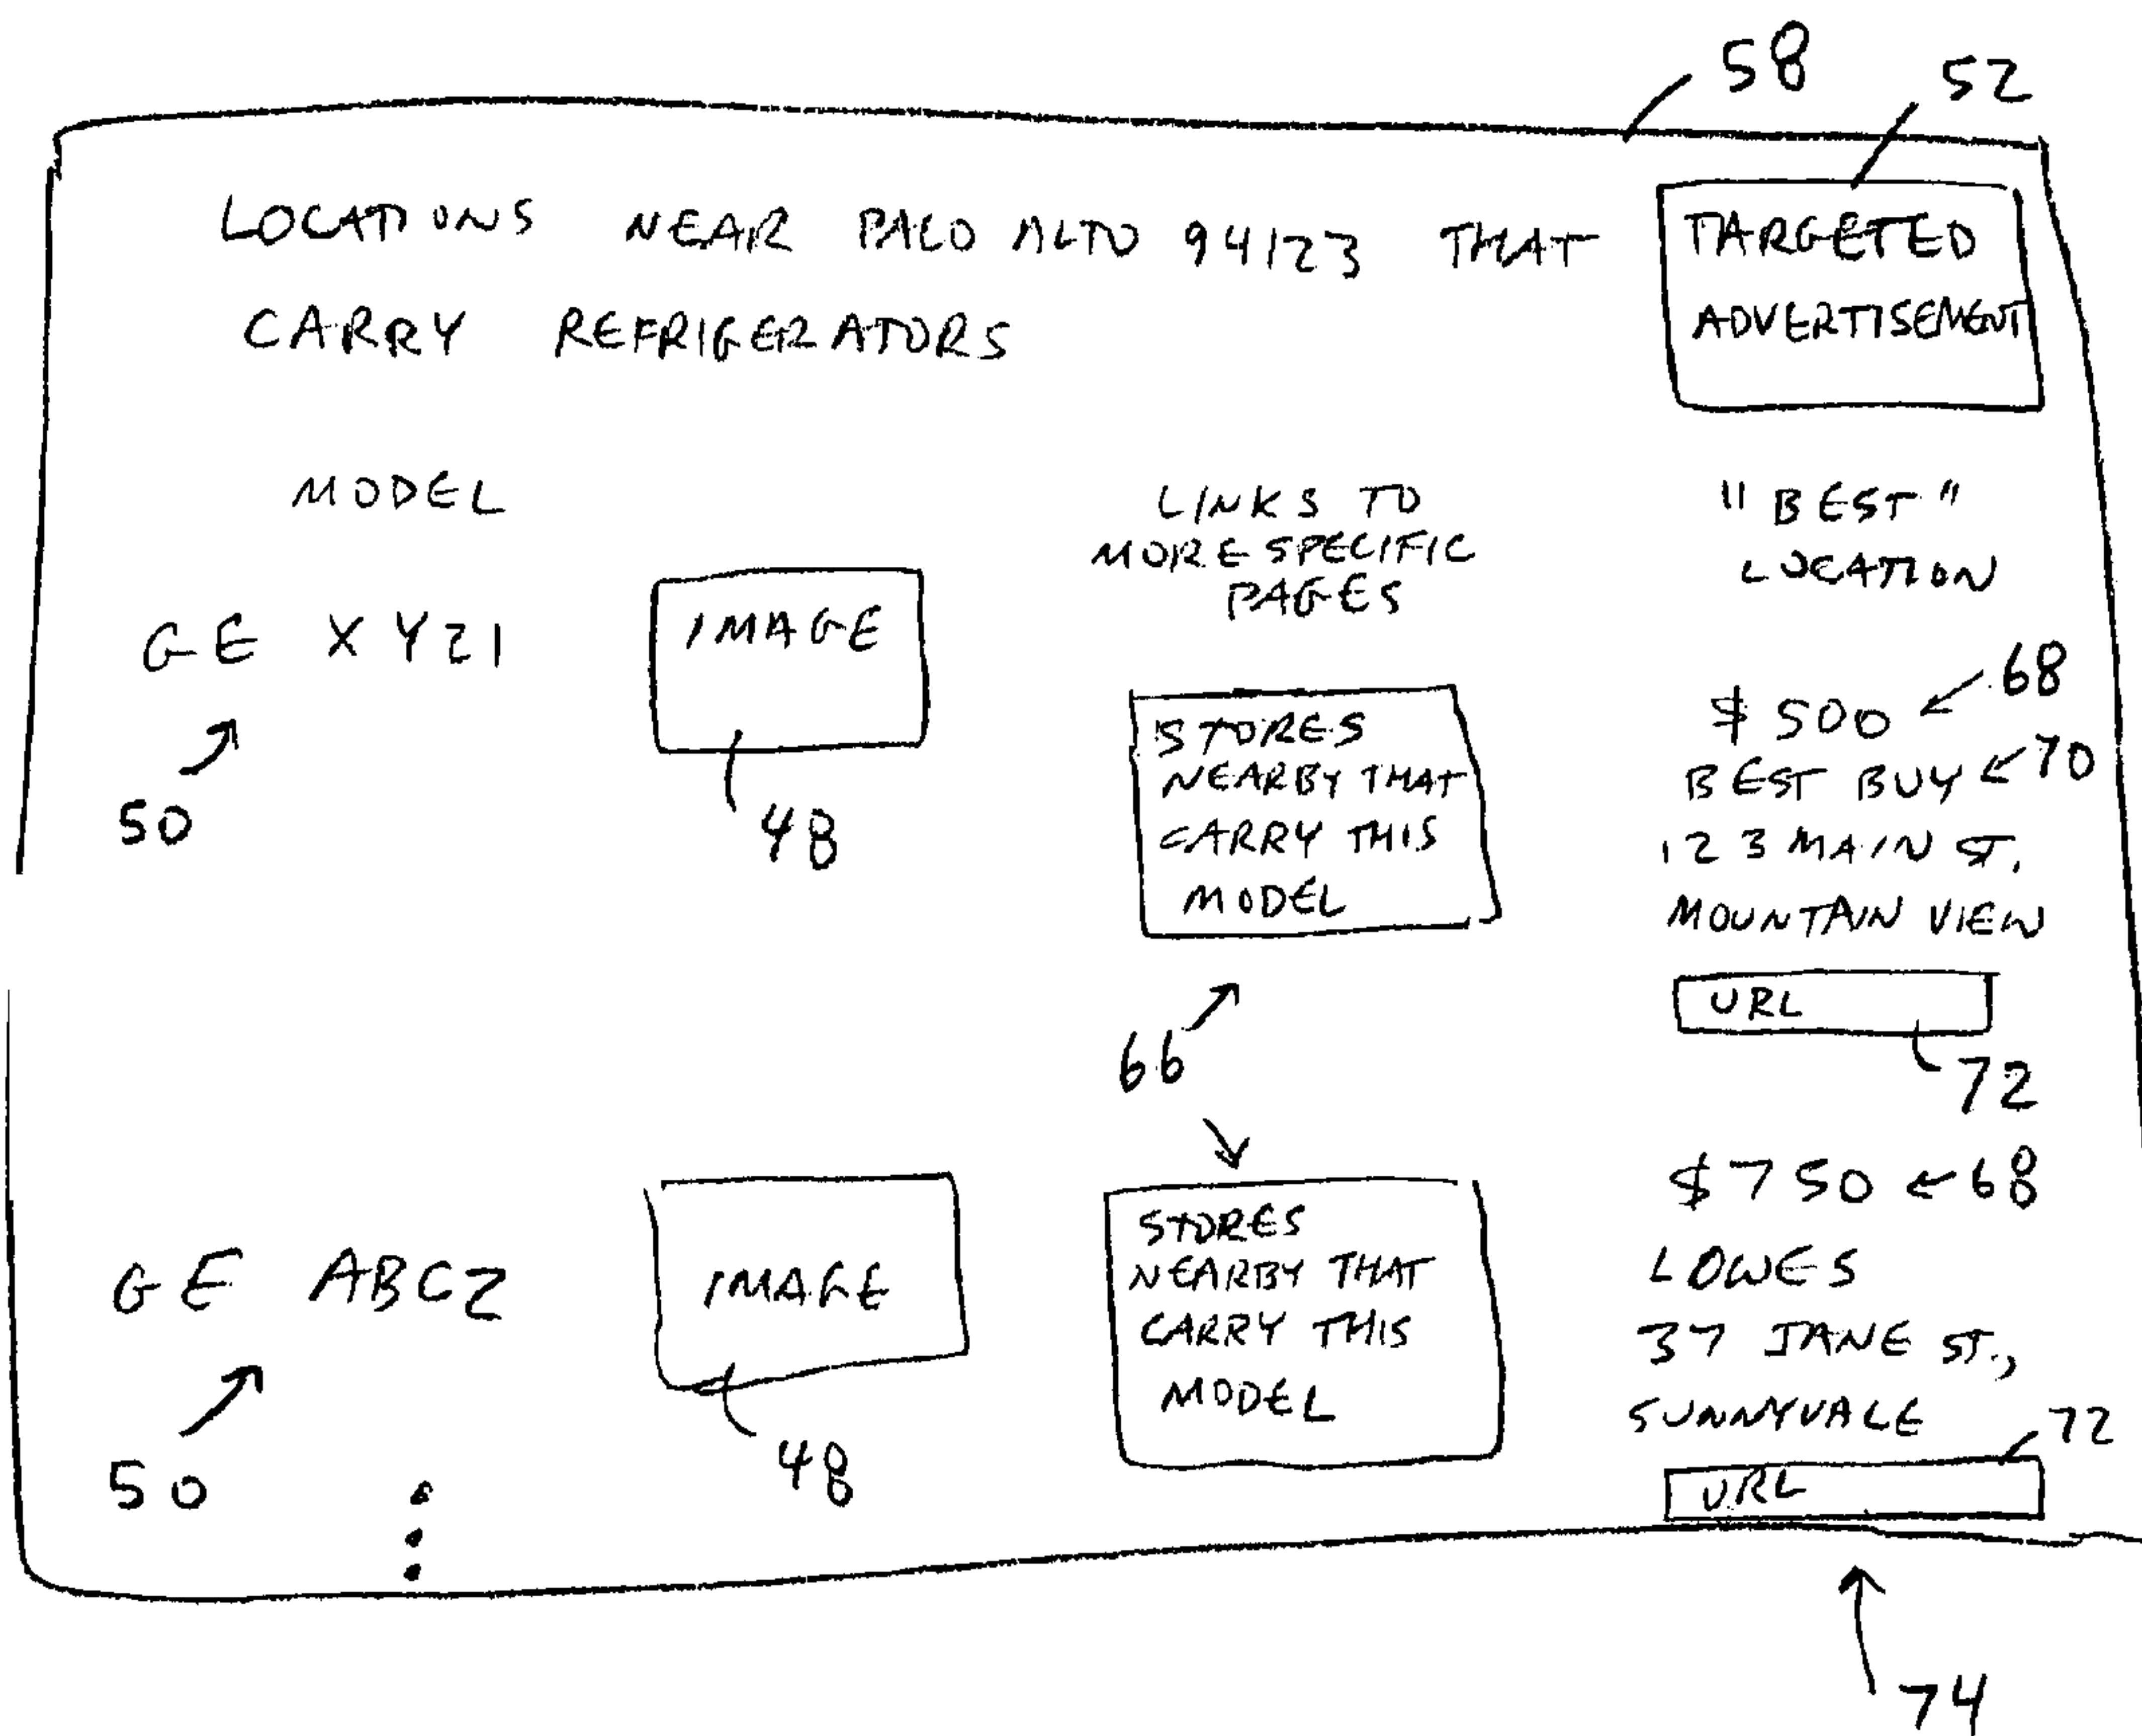 58
52
LOCATIONS NEAR PALO ALTO 94123 THAT
CARRY REFRIGERATORS
TARGETED
ADVERTISEMENT
MODEL
LINKS TO
MORE SPECIFIC
PAGES
"BEST"
LOCATION
GE XYZ1
IMAGE
50
48
STORES
NEARBY THAT
CARRY THIS
MODEL
66
$500
68
BEST BUY
70
123 MAIN ST.
MOUNTAIN VIEW
URL
72
GE ABCZ
IMAGE
50
48
STORES
NEARBY THAT
CARRY THIS
MODEL
$750
68
LOWES
37 JANE ST.,
SUNNYVALE
72
URL
74